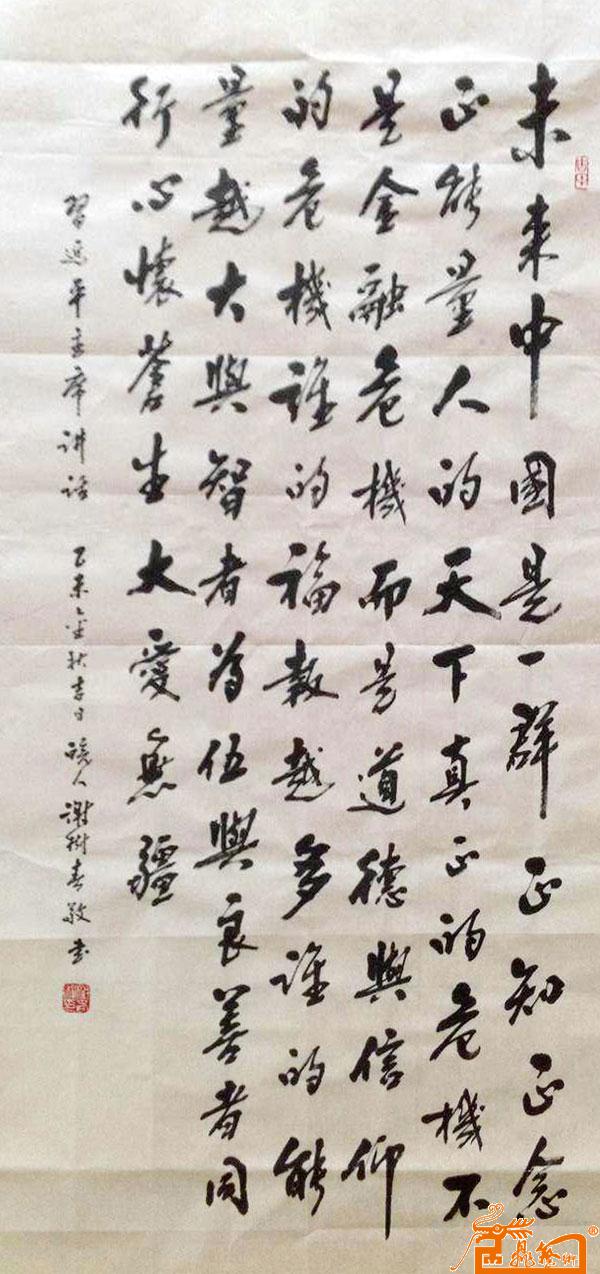 未来中國是一群正知正念
正能量人的天下真正的危機不
是金融危機而是道德與信仰
的危機誰的福報越多誰的能
量越大與智者為伍與良善者同
行心懷蒼生大愛無疆
習近平主席讲话 乙未金秋吉日 人謝樹春敬书